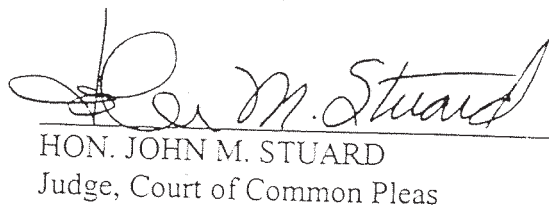 John M. Stuard
HON. JOHN M. STUARD
Judge, Court of Common Pleas